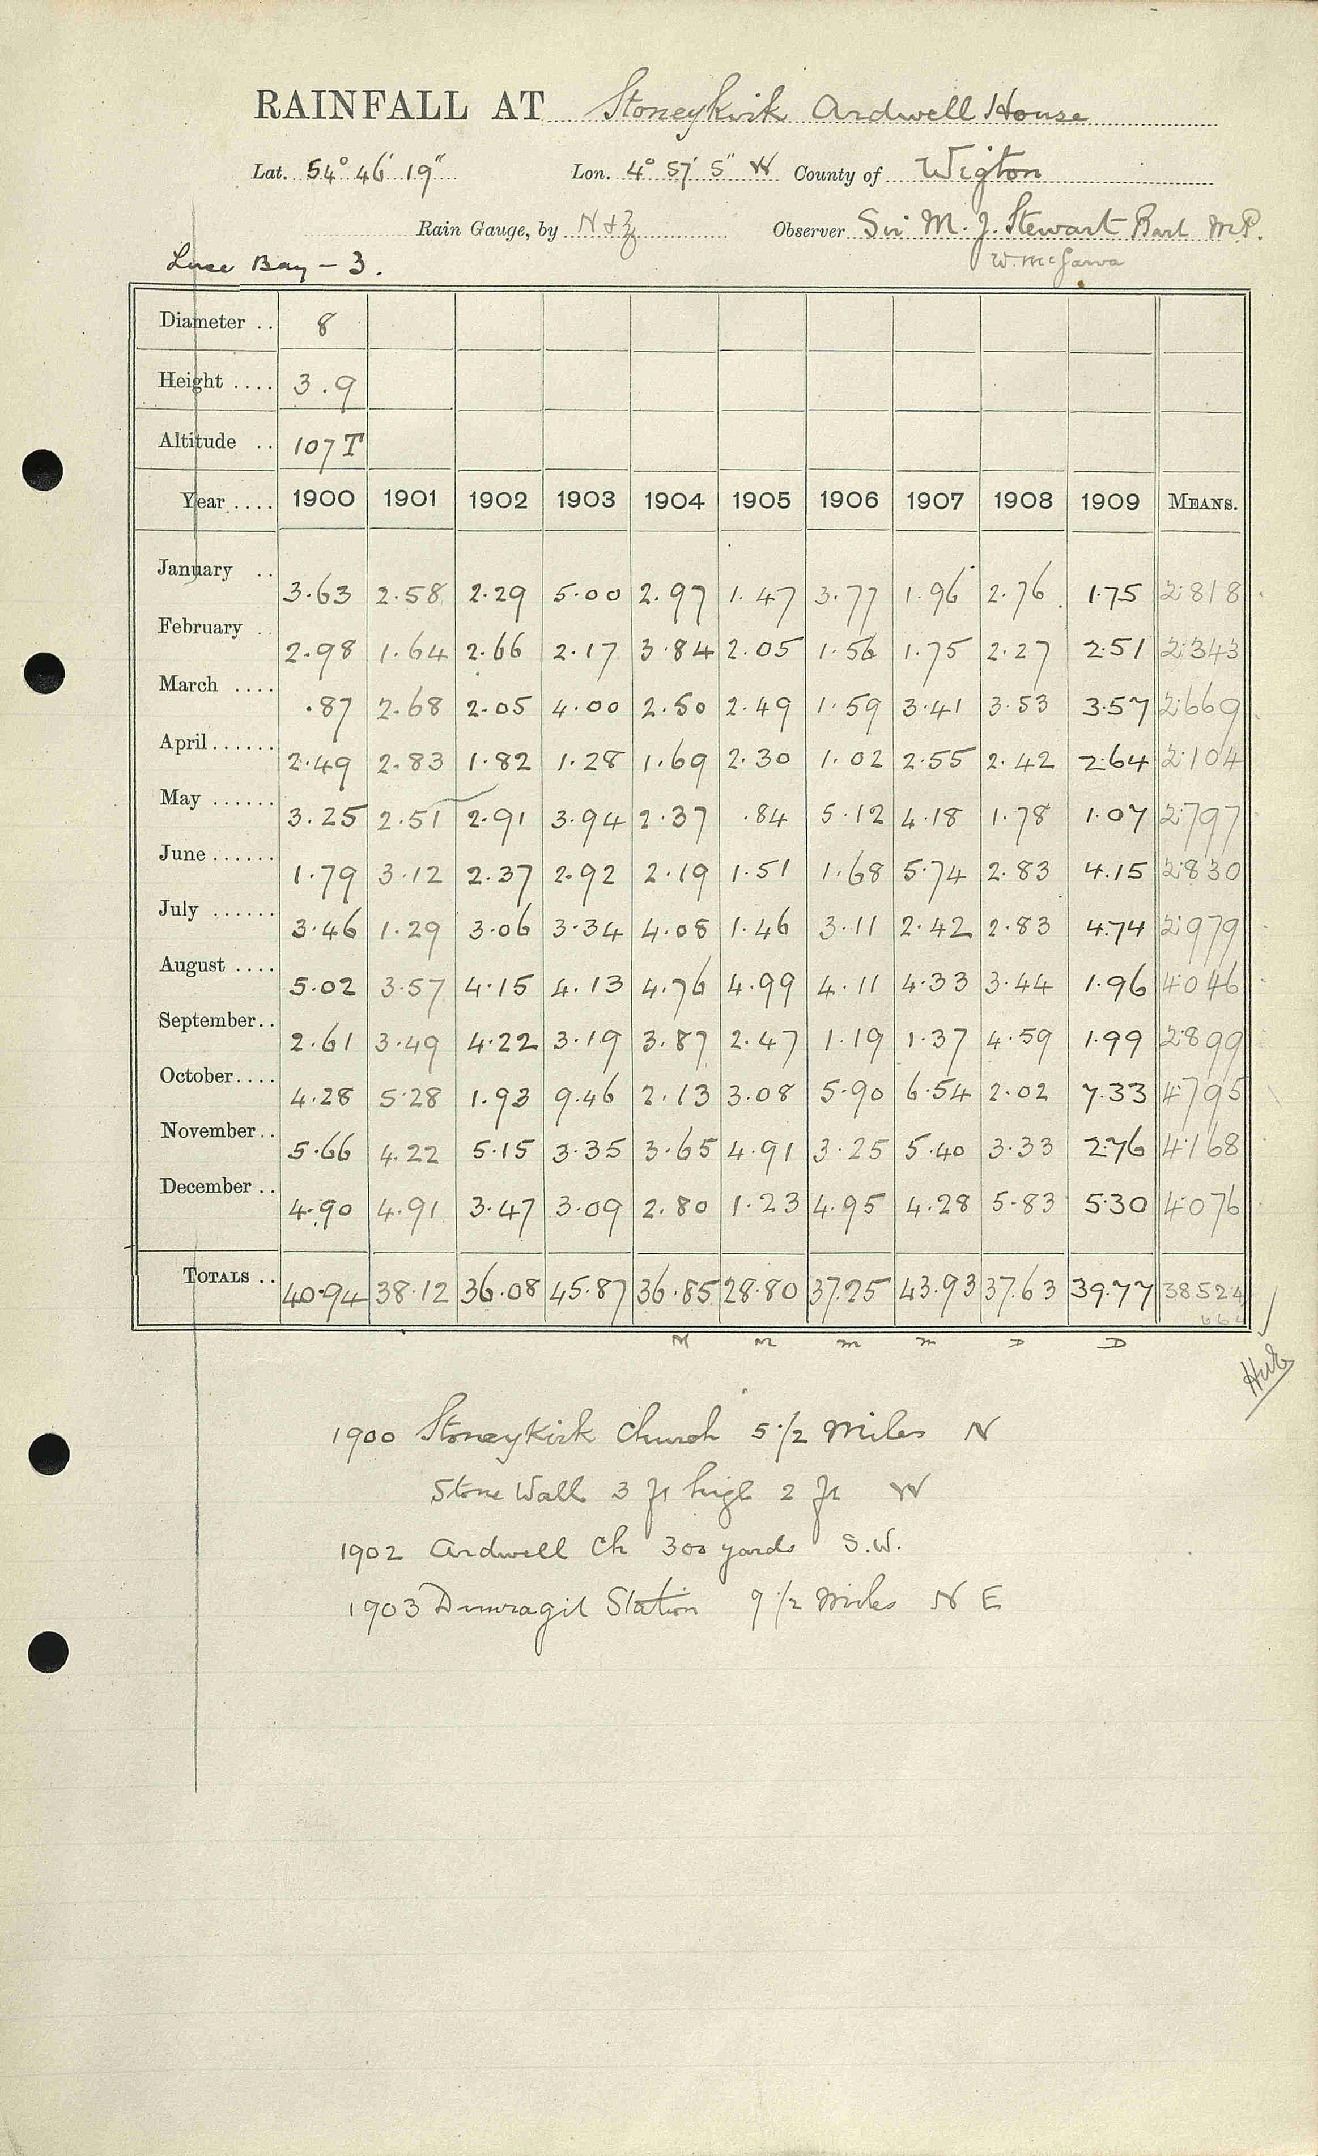 RAINFALL AT Stoneykirk Ardwell House
Lat. 54° 46' 19" Lon. 4° 57' 5" W County of Wigton
Rain Gauge, by N & Z Observer Sir M. J. Stewart Bart M.P.
Luce Bay - 3.
Diameter .. 8
Height .... 3.9
Altitude .. 107 T
Year .... 1900 1901 1902 1903 1904 1905 1906 1907 1908 1909 MEANS.
January .. 3.63 2.58 2.29 5.00 2.97 1.47 3.77 1.96 2.76 1.75 2.818
February .. 2.98 1.64 2.66 2.17 3.84 2.05 1.56 1.75 2.27 2.51 2.343
March .... .87 2.68 2.05 4.00 2.50 2.49 1.59 3.41 3.53 3.57 2.669
April ...... 2.49 2.83 1.82 1.28 1.69 2.30 1.02 2.55 2.42 2.64 2.104
May ...... 3.25 2.51 2.91 3.94 2.37 .84 5.12 4.18 1.78 1.07 2.797
June ...... 1.79 3.12 2.37 2.92 2.19 1.51 1.68 5.74 2.83 4.15 2.830
July ...... 3.46 1.29 3.06 3.34 4.08 1.46 3.11 2.42 2.83 4.74 2.979
August .... 5.02 3.57 4.15 4.13 4.76 4.99 4.11 4.33 3.44 1.96 4.046
September .. 2.61 3.49 4.22 3.19 3.87 2.47 1.19 1.37 4.59 1.99 2.899
October .... 4.28 5.28 1.93 9.46 2.13 3.08 5.90 6.54 2.02 7.33 4.795
November .. 5.66 4.22 5.15 3.35 3.65 4.91 3.25 5.40 3.33 2.76 4.168
December .. 4.90 4.91 3.47 3.09 2.80 1.23 4.95 4.28 5.83 5.30 4.076
TOTALS .. 40.94 38.12 36.08 45.87 36.85 28.80 37.25 43.93 37.63 39.77 38.524
M M M M D D
1900 Stoneykirk Church 5 1/2 Miles N
Stone Wall 3 ft high 2 ft W
1902 Ardwell Ch 300 yards S.W.
1903 Dunragit Station 9 1/2 Miles N E